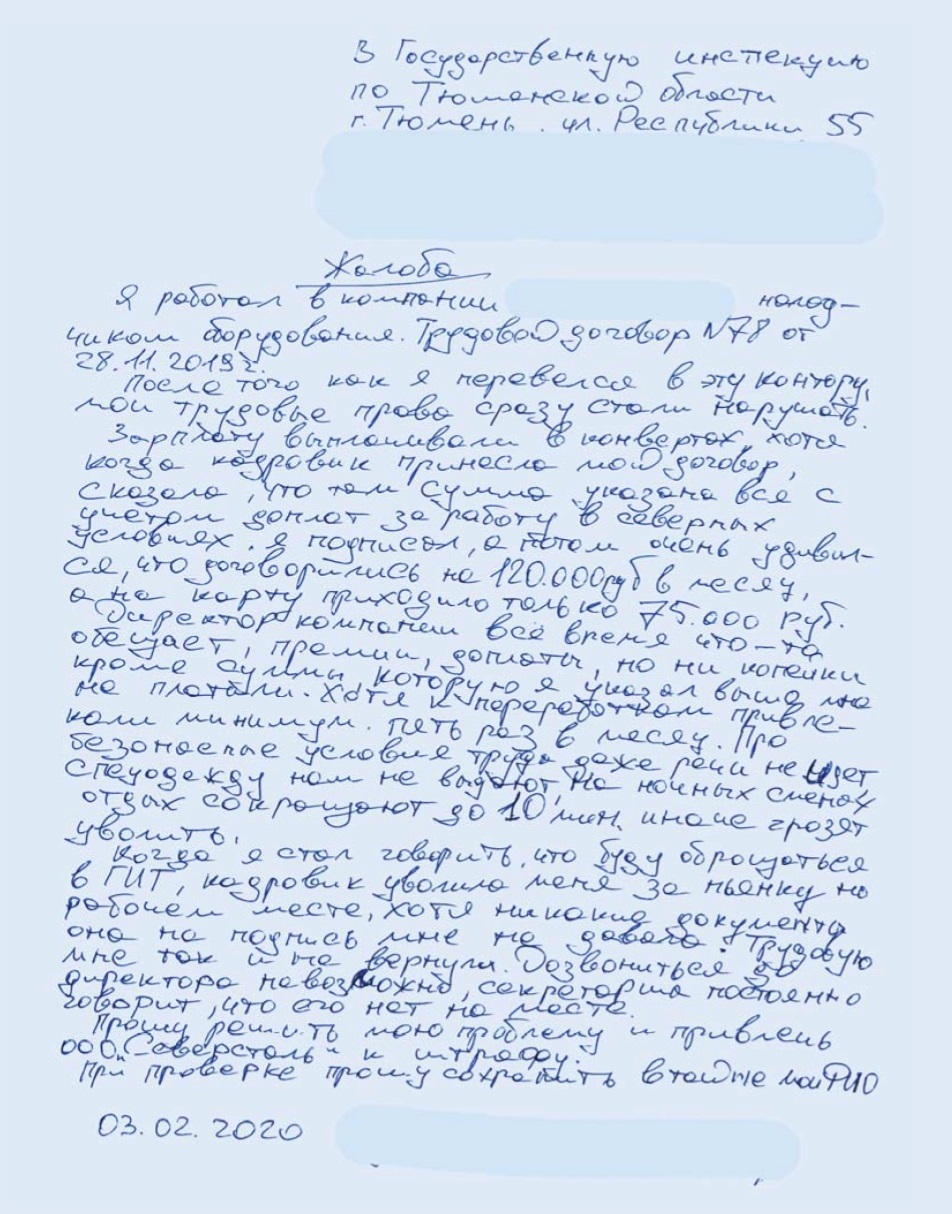 В Государственную инспекцию
по Тюменской области
г. Тюмень. ул. Республики, 55
Жалоба
Я работал в компании налад-
чиком оборудования. Трудовой договор №78 от
28.11.2019г.
После того как я перевелся в эту контору,
мои трудовые права сразу стали нарушать.
Зарплату выплачивали в конвертах, хотя
когда кадровик принесла мой договор,
сказала, что там сумма указана вся с
учетом доплат за работу в северных
условиях. Я подписал, а потом очень удивил-
ся, что договорились на 120.000руб в месяц,
а на карту приходило только 75.000 руб.
Директор компании всё время что-то
обещает, премии, доплаты, но ни копейки
кроме суммы, которую я указал выше мне
не платили. Хотя к переработкам привле-
кали минимум пять раз в месяц. Про
безопасные условия труда даже речи не идет
спецодежду нам не выдают, на ночных сменах
отдых сокращают до 10 мин. иначе грозят
уволить.
Когда я стал говорить, что буду обращаться
в ГИТ, кадровик уволила меня за пьянку на
рабочем месте, хотя никакие документы
она на подпись мне не давала. Трудовую
мне так и не вернули. Дозвониться до
директора невозможно, секретарша постоянно
говорит, что его нет на месте.
Прошу решить мою проблему и привлечь
ООО „Северсталь" к штрафу.
При проверке прошу сохранить в тайне мои ФИО
03.02.2020